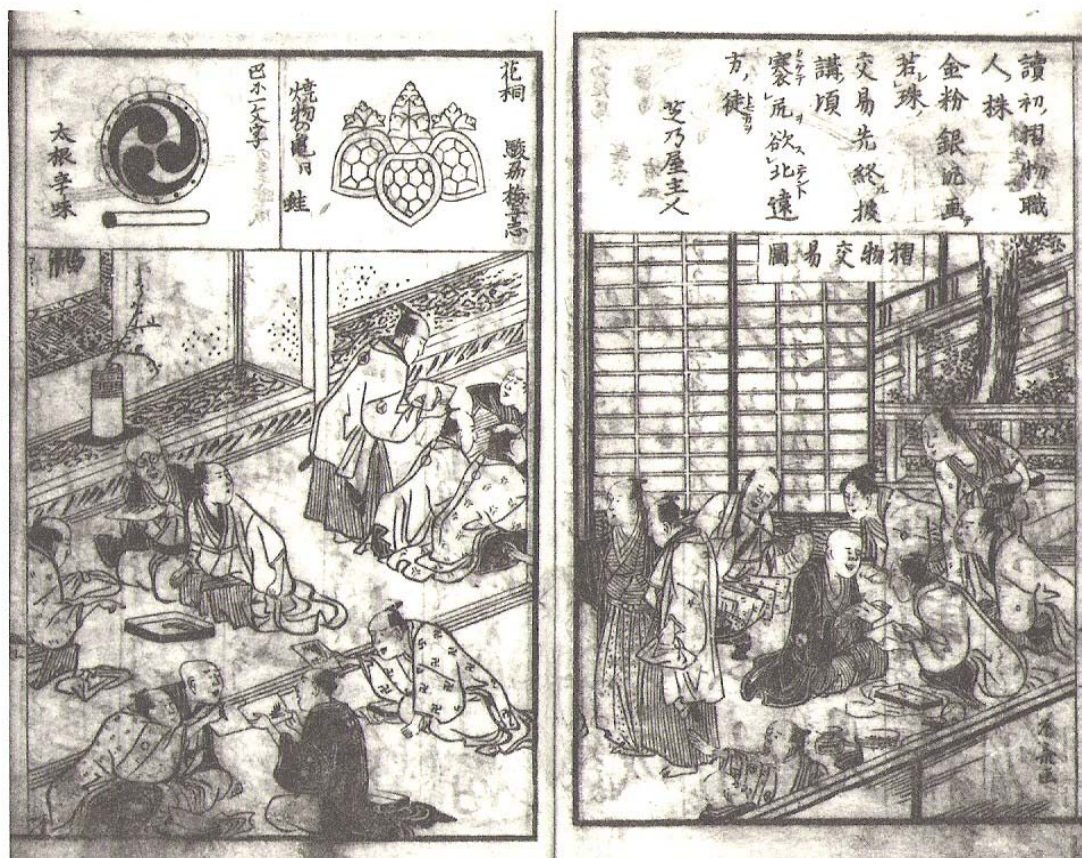 讀初摺物職
人株
金粉銀泥画
若殊
交易先終披
講頃
褰尻欲北遠
方徒
芝乃屋主人
摺物交易圖
花桐
駿府梅志
焼物の亀日
蛙
巴不一文字
大根辛味